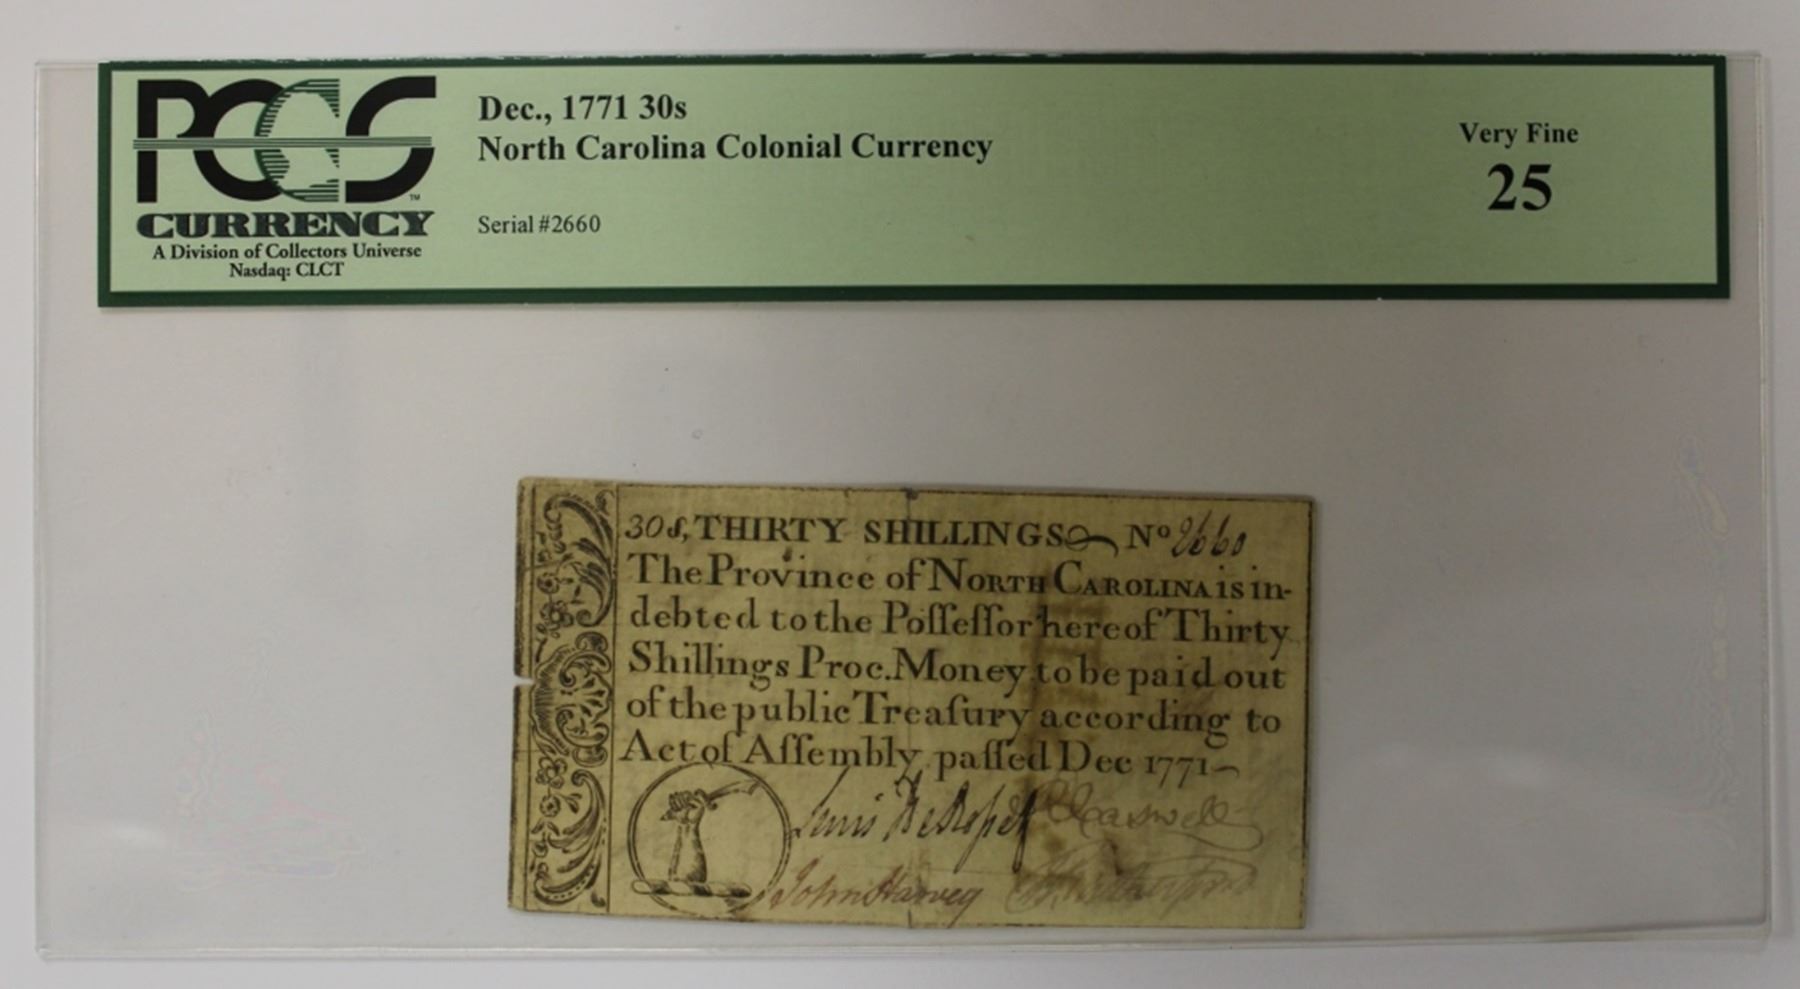 PCGS
CURRENCY
A Division of Collectors Universe
Nasdaq: CLCT
Dec., 1771 30s
North Carolina Colonial Currency
Serial #2660
Very Fine
25
30s, THIRTY SHILLINGS No 2660
The Province of NORTH CAROLINA is in-
debted to the Poſſeſſor hereof Thirty
Shillings Proc. Money to be paid out
of the public Treaſury according to
Act of Aſſembly paſſed Dec 1771
Lewis DeRosset RCaswell
John Harvey